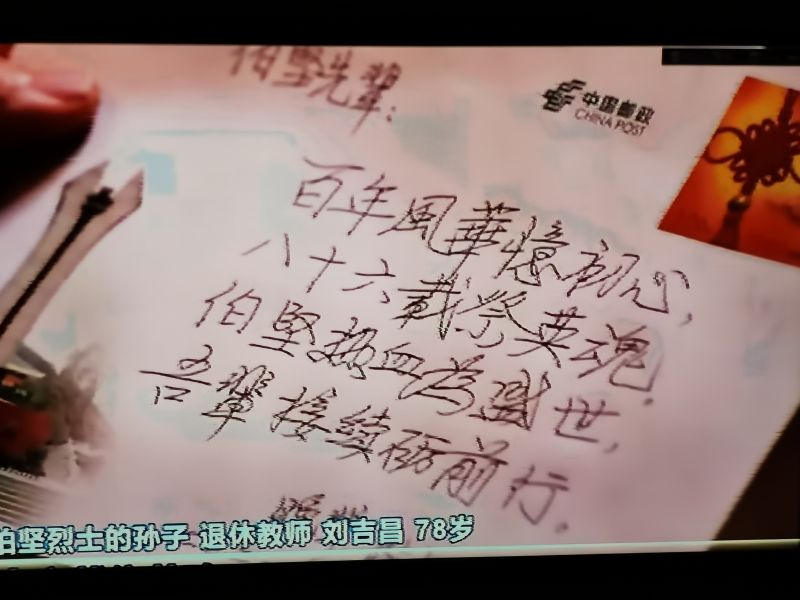 伯堅先輩：
中国邮政
CHINA POST
百年風華憶初心，
八十六載祭英魂．
伯堅热血為盛世，
吾輩接续砺前行．
伯坚烈士的孙子 退休教师 刘吉昌 78岁